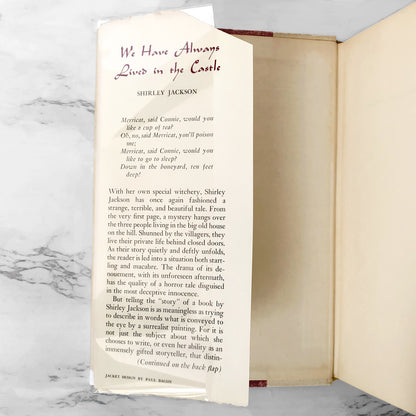 We Have Always
Lived in the Castle
SHIRLEY JACKSON
Merricat, said Connie, would you
like a cup of tea?
Oh, no, said Merricat, you'll poison
me;
Merricat, said Connie, would you
like to go to sleep?
Down in the boneyard, ten feet
deep!
With her own special witchery, Shirley
Jackson has once again fashioned a
strange, terrible, and beautiful tale. From
the very first page, a mystery hangs over
the three people living in the big old house
on the hill. Shunned by the villagers, they
live their private life behind closed doors.
As their story quietly and deftly unfolds,
the reader is led into a situation both start-
ling and macabre. The drama of its de-
nouement, with its unforeseen aftermath,
has the quality of a horror tale disguised
in the most deceptive innocence.
But telling the "story" of a book by
Shirley Jackson is as meaningless as trying
to describe in words what is conveyed to
the eye by a surrealist painting. For it is
not just the subject about which she
chooses to write, or even her ability as an
immensely gifted storyteller, that distin-
(Continued on the back flap)
JACKET DESIGN BY PAUL BACON